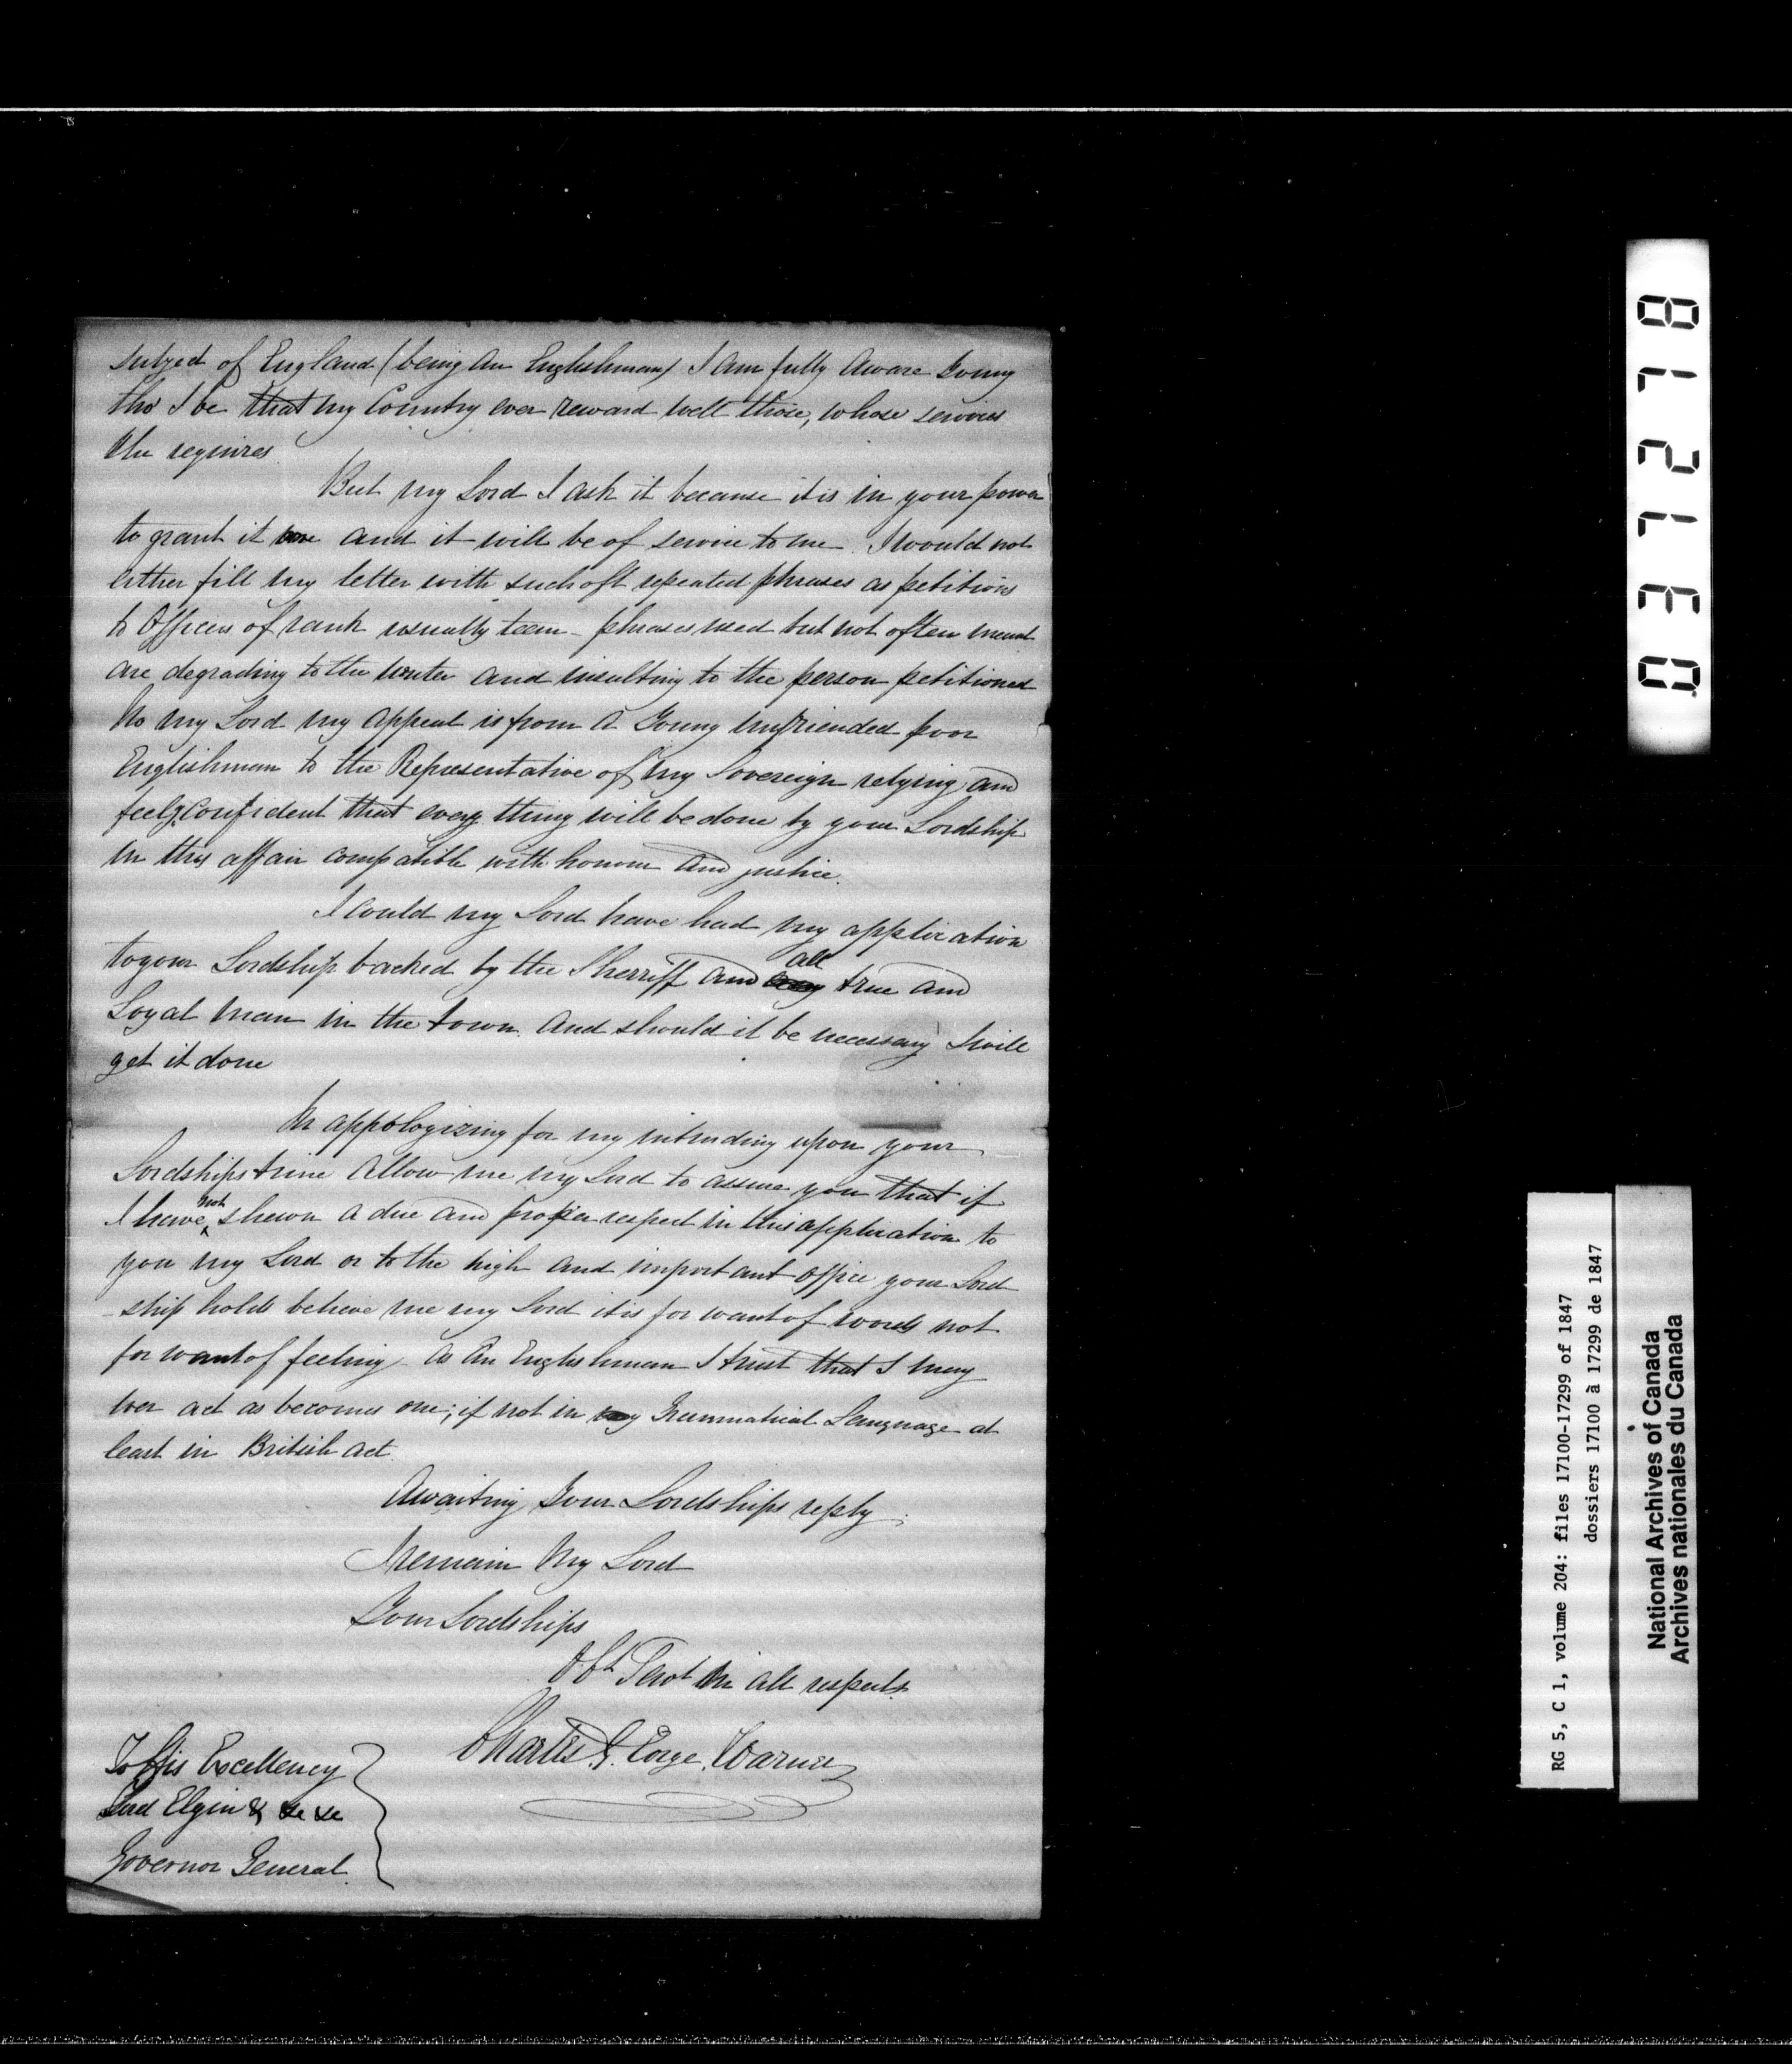 subject of England (being an Englishman) I am fully aware young
tho' I be that my Country ever reward well those, whose services
she requires
But my Lord I ask it because it is in your power
to grant it and it will be of service to me. I would not
either fill my letter with such oft repeated phrases as petitions
to Officers of rank usually teem - phrases used but not often meant
are degrading to the writer and insulting to the person petitioned
No my Lord my appeal is from a Young unfriended poor
Englishman to the Representative of my Sovereign relying and
feelg confident that every thing will be done by your Lordship
in this affair compatible with honour and justice.
I could my Lord have had my application
to your Lordship backed by the Sherriff and all true and
Loyal man in the town. And should it be necessary I will
get it done
In appologizing for my intruding upon your
Lordships time allow me my Lord to assure you that if
I have not shewn a due and proper respect in this application to
you my Lord or to the high and important office your Lord
-ship holds believe me my Lord it is for want of words not
for want of feeling - As An Englishman I trust that I may
ever act as becomes one; if not in Grammatical Language at
least in British act.
Awaiting Your Lordships reply.
I remain My Lord
Your Lordships
Obt Servt in all respects.
Charles George Warner
To His Excellency
Lord Elgin & &c &c
Governor General.
037218
RG 5, C 1, volume 204: files 17100-17299 of 1847
dossiers 17100 à 17299 de 1847
National Archives of Canada
Archives nationales du Canada